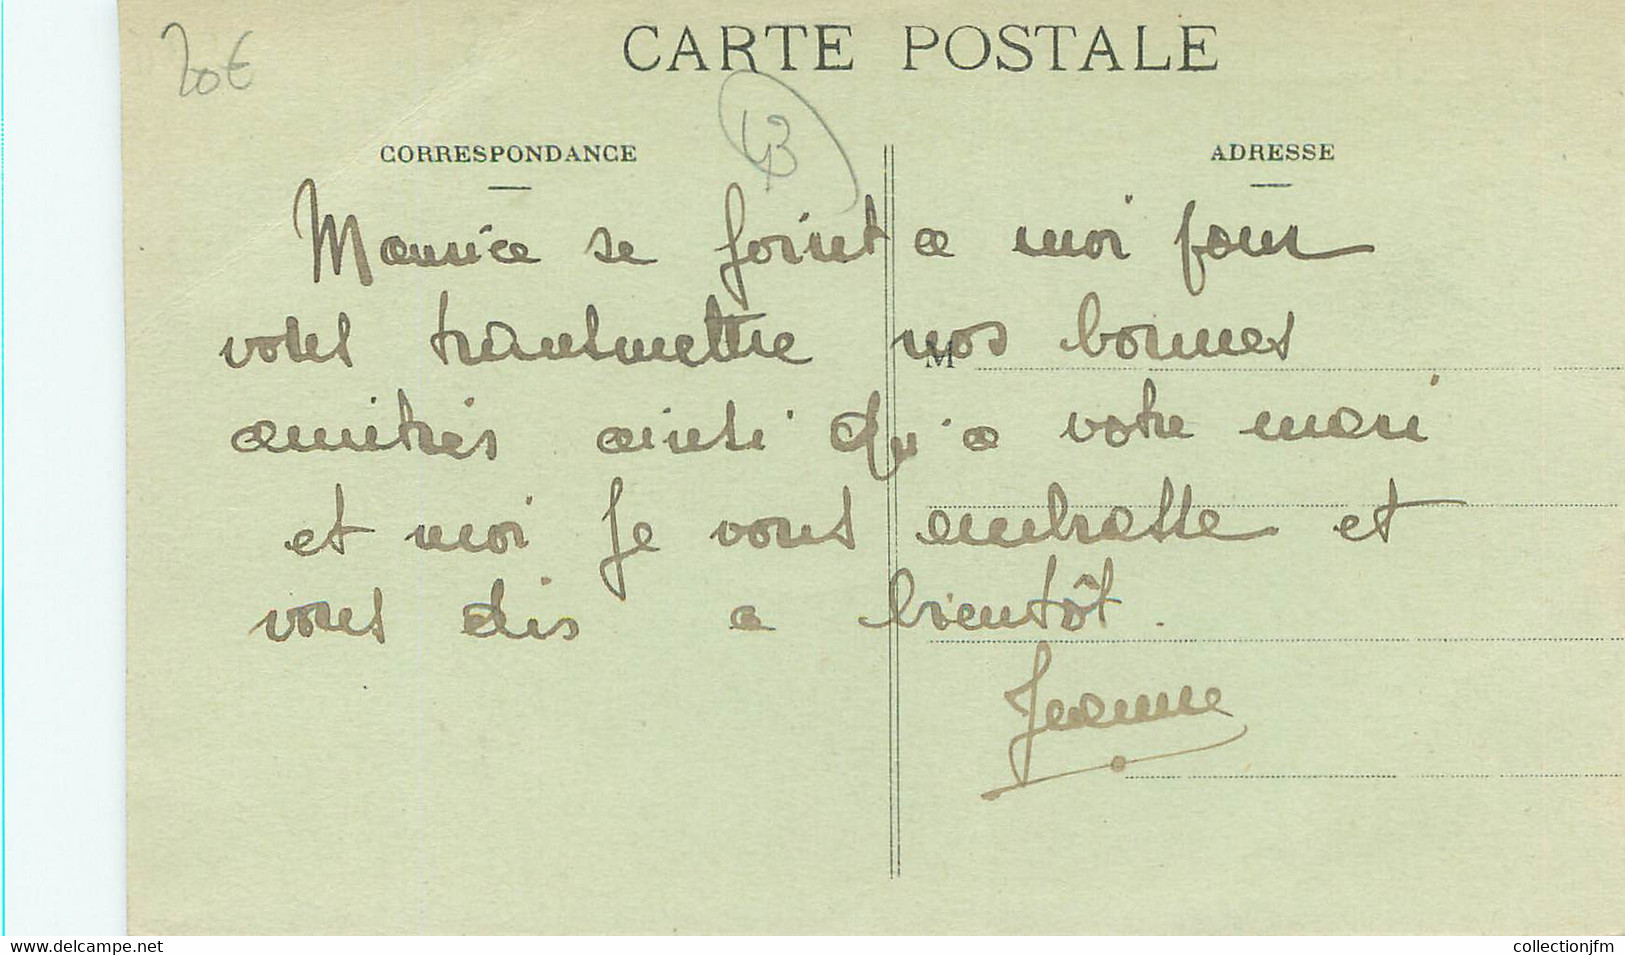 20€
CARTE POSTALE
43
CORRESPONDANCE
ADRESSE
Maurice se joint a moi pour
vous transmettre nos bonnes
M
amitiés ainsi qu'a votre mari
et moi je vous embrasse et
vous dis a bientôt.
Jeanne
www.delcampe.net
collectionjfm